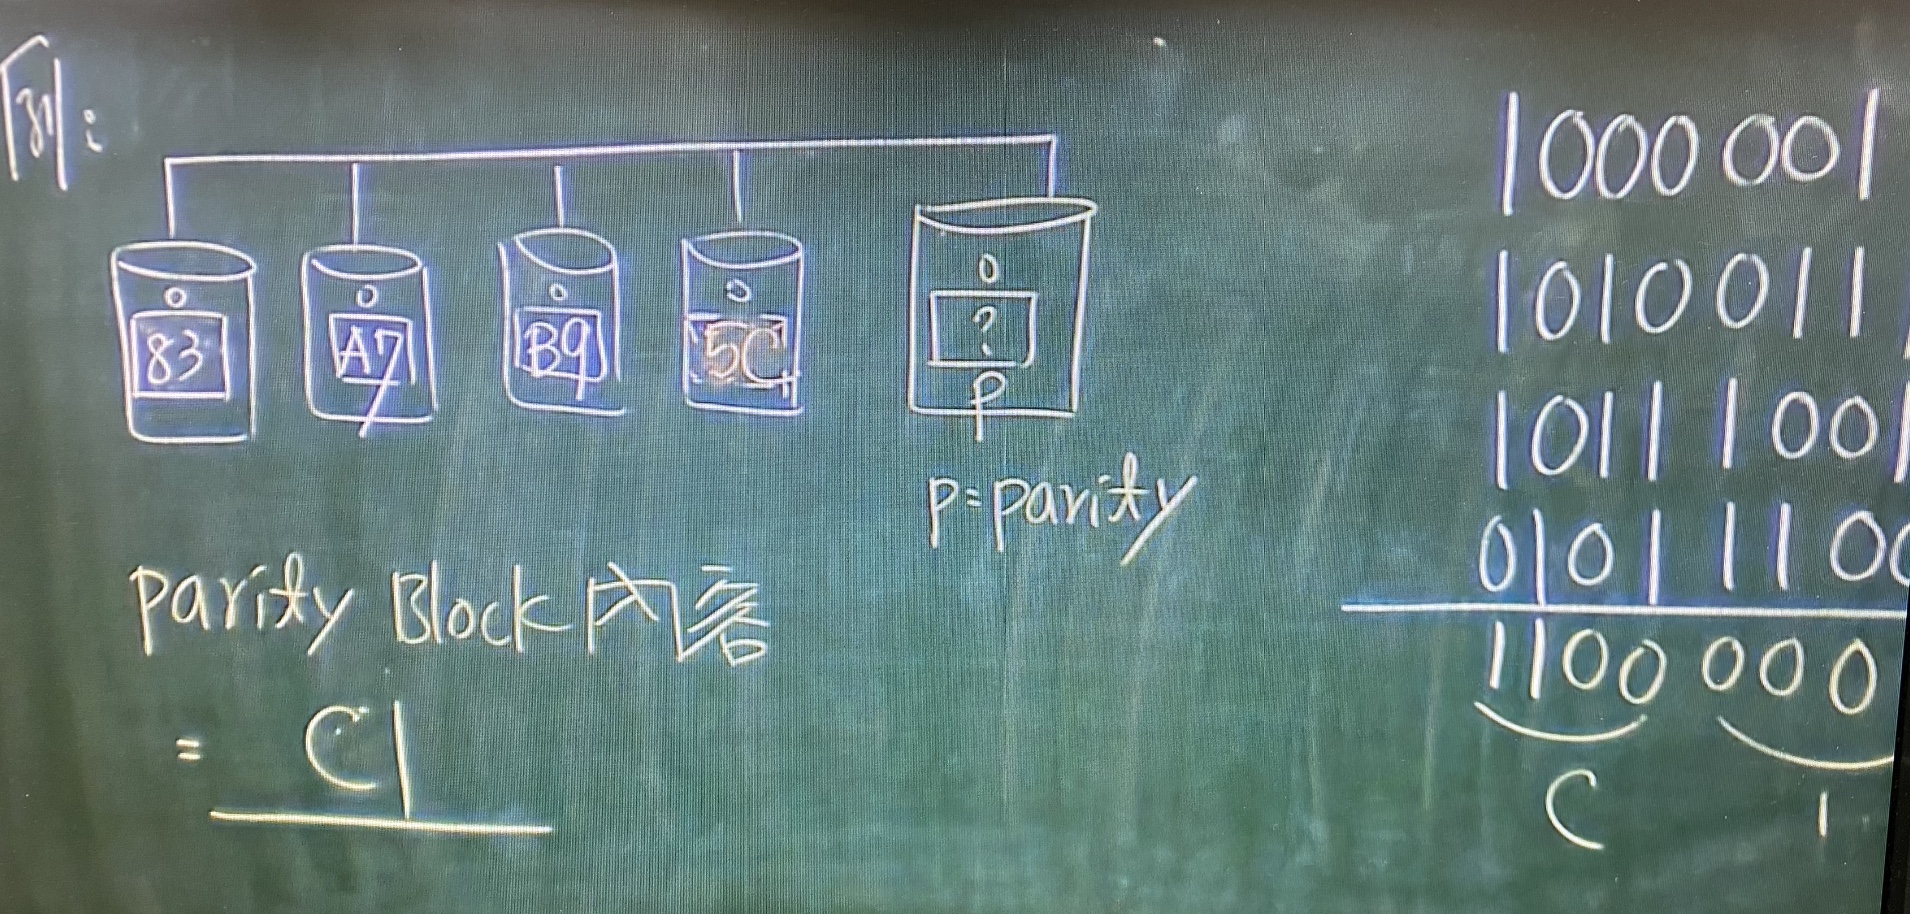 例:
0 0 0 0 0
83 A7 B9 5C ?
P
P=parity
parity Block 内容
= C1
1000 001
1010 011
1011 100
0101 110
1100 000
C 1